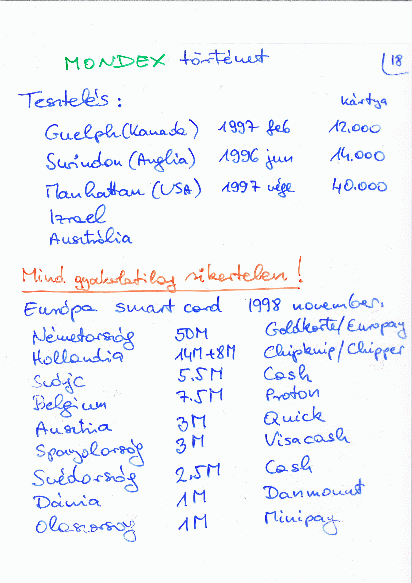 MONDEX történet
18
Tesztelés :
kártya
Guelph (Kanada) 1997 feb 12.000
Swindon (Anglia) 1996 jun 14.000
Manhattan (USA) 1997 vége 40.000
Izrael
Ausztrália
Mind gyakorlatilag sikertelen!
Európa smart card 1998 november.
Németország 50M Geldkarte/Europay
Hollandia 14M+8M Chipknip/Chipper
Svájc 5.5M Cash
Belgium 7.5M Proton
Ausztria 3M Quick
Spanyolország 3M Visacash
Svédország 2,5M Cash
Dánia 1M Danmount
Olaszország 1M Minipay